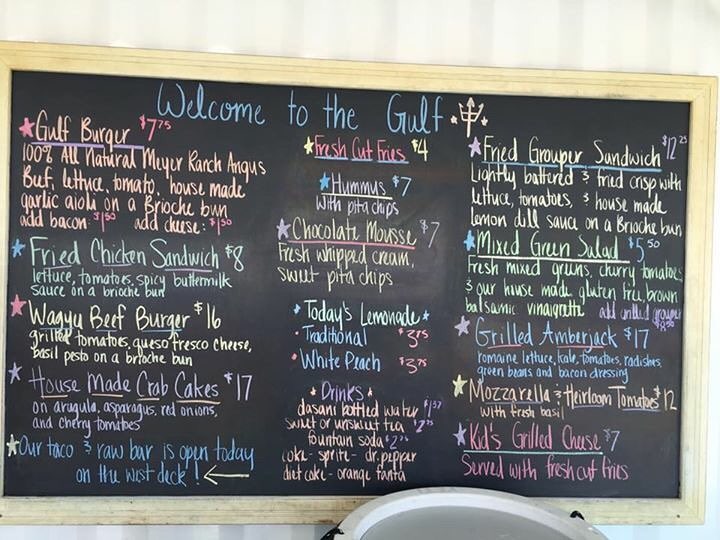 Welcome to the Gulf
Gulf Burger $7.75
100% All Natural Meyer Ranch Angus
Beef, lettuce, tomato, house made
garlic aioli on a Brioche bun
add bacon: $1.50 add cheese: $1.50
Fried Chicken Sandwich $8
lettuce, tomatoes, spicy buttermilk
sauce on a brioche bun
Wagyu Beef Burger $16
grilled tomatoes, queso fresco cheese,
basil pesto on a brioche bun
House Made Crab Cakes $17
on arugula, asparagus, red onions,
and cherry tomatoes
Our taco & raw bar is open today
on the west deck!
Fresh Cut Fries $4
Hummus $7
with pita chips
Chocolate Mousse $7
Fresh whipped cream,
sweet pita chips
Today's Lemonade
Traditional $3.75
White Peach $3.75
Drinks
dasani bottled water
sweet or unsweet tea $2.75
fountain soda $2.75
coke - sprite - dr. pepper
diet coke - orange fanta
Fried Grouper Sandwich $12.25
Lightly battered & fried crisp with
lettuce, tomatoes, & house made
lemon dill sauce on a Brioche bun
Mixed Green Salad $5.50
Fresh mixed greens, cherry tomatoes
& our house made gluten free, brown
balsamic vinagrette add grilled grouper
$8.50
Grilled Amberjack $17
romaine lettuce, kale, tomatoes, radishes
green beans and bacon dressing
Mozzarella & Heirloom Tomatoes $12
with fresh basil
Kid's Grilled Cheese $7
Served with fresh cut fries